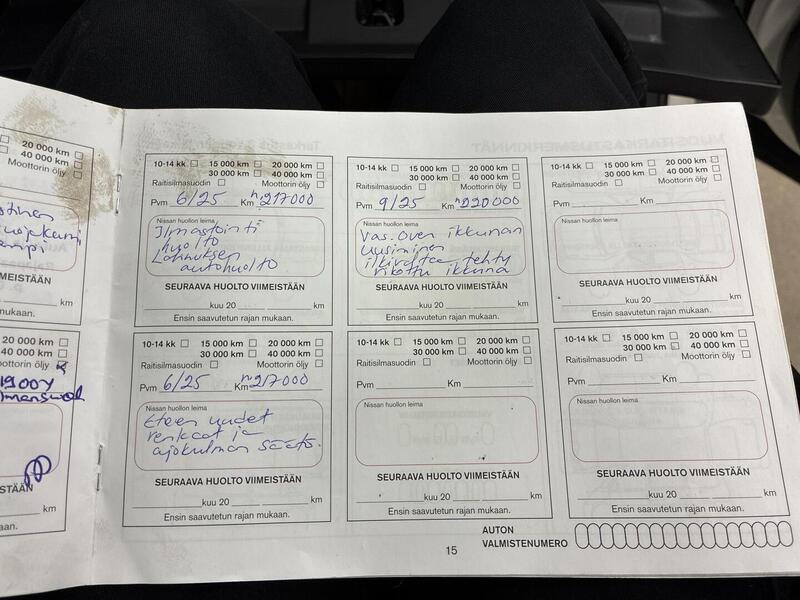 20 000 km
40 000 km
Moottorin öljy
km
20 000 km
40 000 km
aan.
10-14 kk 15 000 km 20 000 km
30 000 km 40 000 km
Raitisilmasuodin Moottorin öljy
Pvm 6/25 Km n 217000
Nissan huollon leima
Ilmastointi
huolto
Lannuksen
autohuolto
SEURAAVA HUOLTO VIIMEISTÄÄN
kuu 20 km
Ensin saavutetun rajan mukaan.
10-14 kk 15 000 km 20 000 km
30 000 km 40 000 km
Raitisilmasuodin Moottorin öljy
Pvm 9/25 Km n 220000
Nissan huollon leima
Vas. oven ikkunan
uusiminen
ilkivaltaa tehty
rikottu ikkuna
SEURAAVA HUOLTO VIIMEISTÄÄN
kuu 20 km
Ensin saavutetun rajan mukaan.
10-14 kk 15 000 km 20 000 km
30 000 km 40 000 km
Raitisilmasuodin Moottorin öljy
Pvm Km
Nissan huollon leima
SEURAAVA HUOLTO VIIMEISTÄÄN
kuu 20 km
Ensin saavutetun rajan mukaan.
10-14 kk 15 000 km 20 000 km
30 000 km 40 000 km
Raitisilmasuodin Moottorin öljy
Pvm 6/25 Km n 217000
Nissan huollon leima
Eteen uudet
renkaat ja
ajokulman säätö.
SEURAAVA HUOLTO VIIMEISTÄÄN
kuu 20 km
Ensin saavutetun rajan mukaan.
10-14 kk 15 000 km 20 000 km
30 000 km 40 000 km
Raitisilmasuodin Moottorin öljy
Pvm Km
Nissan huollon leima
SEURAAVA HUOLTO VIIMEISTÄÄN
kuu 20 km
Ensin saavutetun rajan mukaan.
10-14 kk 15 000 km 20 000 km
30 000 km 40 000 km
Raitisilmasuodin Moottorin öljy
Pvm Km
Nissan huollon leima
SEURAAVA HUOLTO VIIMEISTÄÄN
kuu 20 km
Ensin saavutetun rajan mukaan.
15
AUTON
VALMISTENUMERO